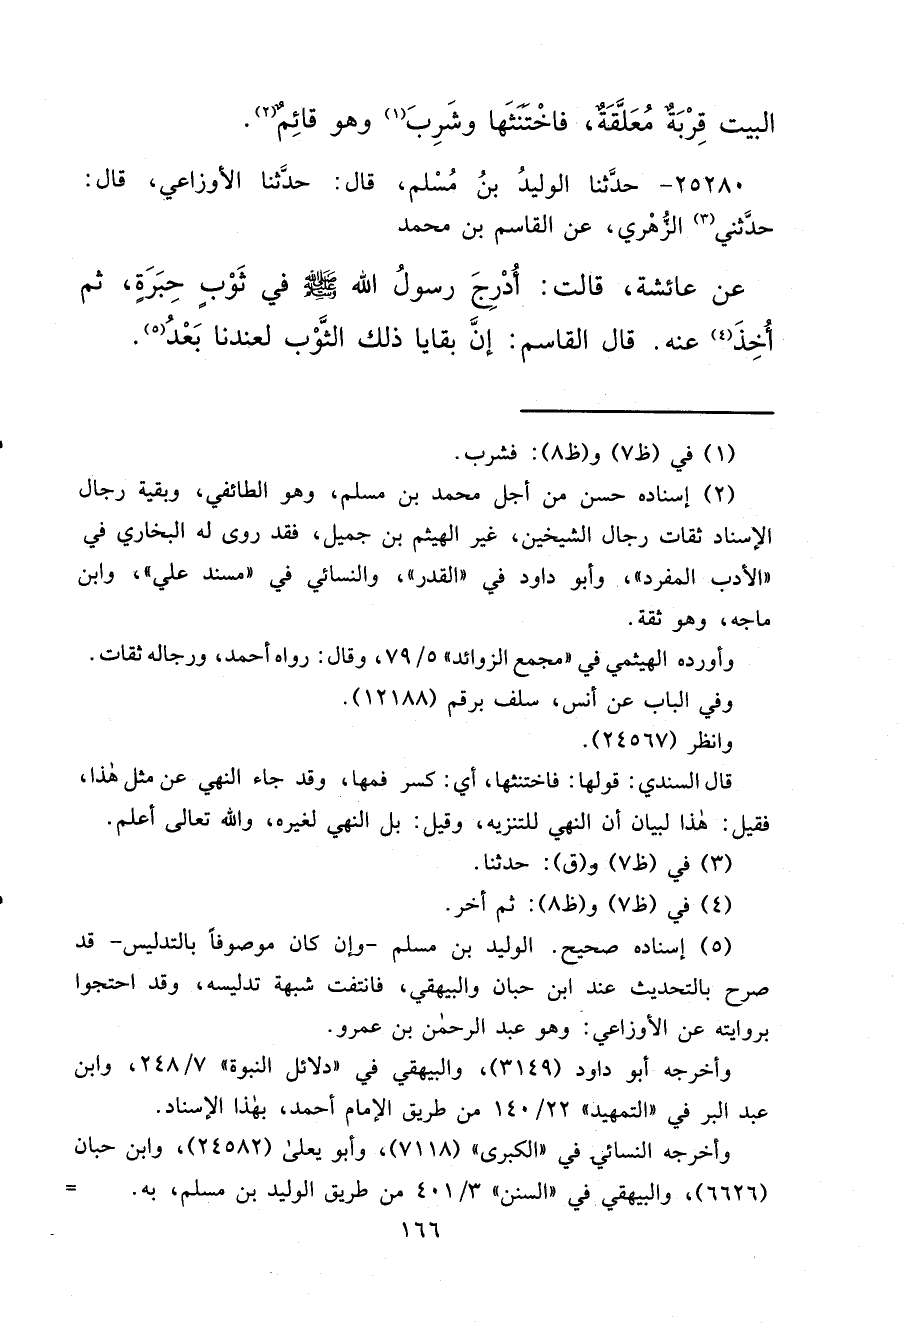 البيت قِرْبَةٌ مُعَلَّقَةٌ، فاخْتَنَثَها وشَرِبَ(١) وهو قائِمٌ(٢).
٢٥٢٨٠- حدَّثنا الوليدُ بنُ مُسْلم، قال: حدَّثنا الأوزاعي، قال:
حدَّثني(٣) الزُّهْري، عن القاسم بن محمد
عن عائشة، قالت: أُدْرِجَ رسولُ الله ﷺ في ثَوْبٍ حِبَرَةٍ، ثم
أُخِذَ(٤) عنه. قال القاسم: إنَّ بقايا ذلك الثَّوْب لعندنا بَعْدُ(٥).
(١) في (ظ٧) و(ظ٨): فشرب.
(٢) إسناده حسن من أجل محمد بن مسلم، وهو الطائفي، وبقية رجال
الإسناد ثقات رجال الشيخين، غير الهيثم بن جميل، فقد روى له البخاري في
«الأدب المفرد»، وأبو داود في «القدر»، والنسائي في «مسند علي»، وابن
ماجه، وهو ثقة.
وأورده الهيثمي في «مجمع الزوائد» ٧٩/٥، وقال: رواه أحمد، ورجاله ثقات.
وفي الباب عن أنس، سلف برقم (١٢١٨٨).
وانظر (٢٤٥٦٧).
قال السندي: قولها: فاختنثها، أي: كسر فمها، وقد جاء النهي عن مثل هٰذا،
فقيل: هٰذا لبيان أن النهي للتنزيه، وقيل: بل النهي لغيره، والله تعالى أعلم.
(٣) في (ظ٧) و(ق): حدثنا.
(٤) في (ظ٧) و(ظ٨): ثم أخر.
(٥) إسناده صحيح. الوليد بن مسلم -وإن كان موصوفاً بالتدليس- قد
صرح بالتحديث عند ابن حبان والبيهقي، فانتفت شبهة تدليسه، وقد احتجوا
بروايته عن الأوزاعي: وهو عبد الرحمٰن بن عمرو.
وأخرجه أبو داود (٣١٤٩)، والبيهقي في «دلائل النبوة» ٢٤٨/٧، وابن
عبد البر في «التمهيد» ١٤٠/٢٢ من طريق الإمام أحمد، بهٰذا الإسناد.
وأخرجه النسائي في «الكبرى» (٧١١٨)، وأبو يعلىٰ (٢٤٥٨٢)، وابن حبان
(٦٦٢٦)، والبيهقي في «السنن» ٤٠١/٣ من طريق الوليد بن مسلم، به. =
١٦٦